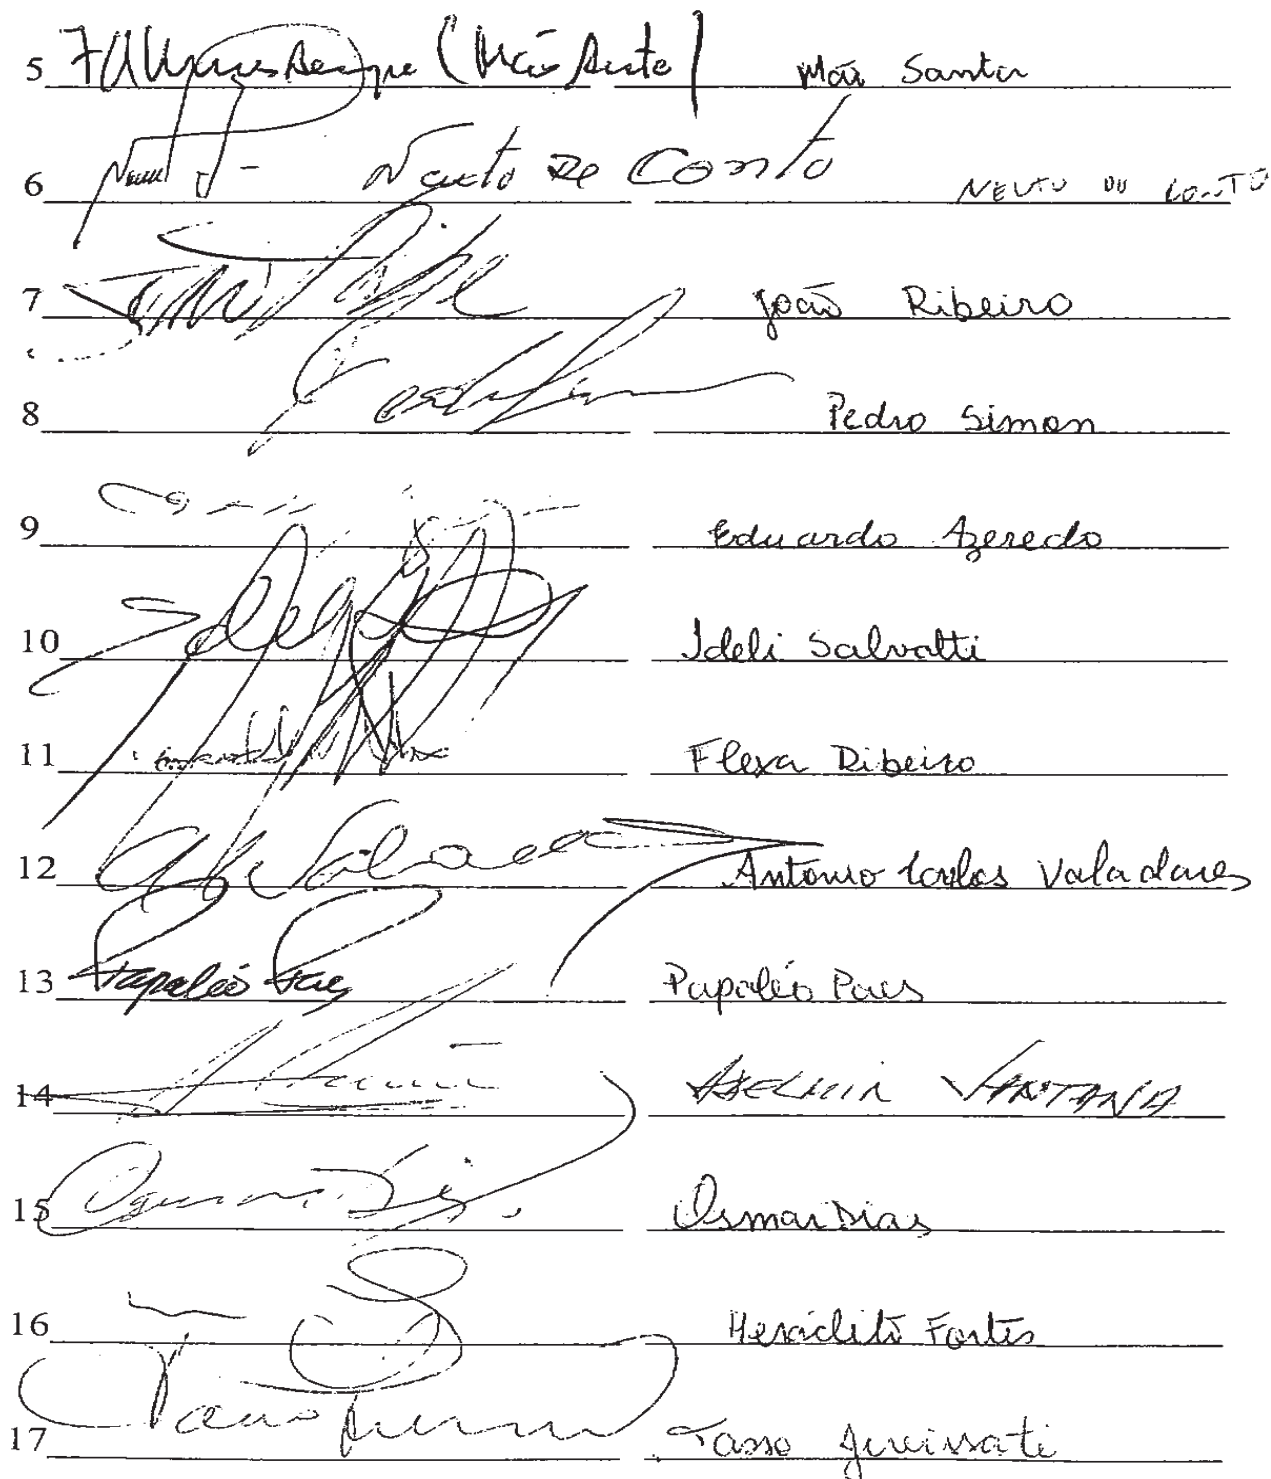 5 (Mão Santa) Mão Santa
6 Neuto de Conto NEUTO DO CONTO
7 João Ribeiro
8 Pedro Simon
9 Eduardo Azeredo
10 Ideli Salvatti
11 Flexa Ribeiro
12 Antonio Carlos Valadares
13 Papaléo Paes Papaléo Paes
14 ADELMIR SANTANA
15 Osmar Dias Osmar Dias
16 Heráclito Fortes
17 Tasso Jereissati